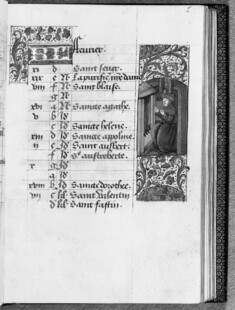 feurier.
xi d Saint seuer.
xix e N La purificat nre dame
viii f N Saint blaise.
g N
xvi a N Saincte agathe.
v b Id
c Id Saincte helene.
xiii d Id Saincte appoline.
ii e Id Saint ausbert.
f Id Ste austreberte.
x g Id
a Id
xviii b Id Saincte dorothee.
vii c Id Saint valentin
d kl Saint faustin.